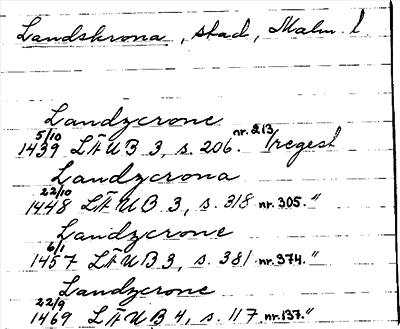 Landskrona, stad, Malm. l.
Landzcrone
5/10 1439 LÄUB 3, s. 206. nr. 213/regest
Landzcrona
22/10 1448 LÄUB 3, s. 318 nr. 305. "
Landzcrone
6/1 1457 LÄUB 3, s. 381. nr. 374. "
Landzcrone
22/9 1469 LÄUB 4, s. 117 nr. 137. "